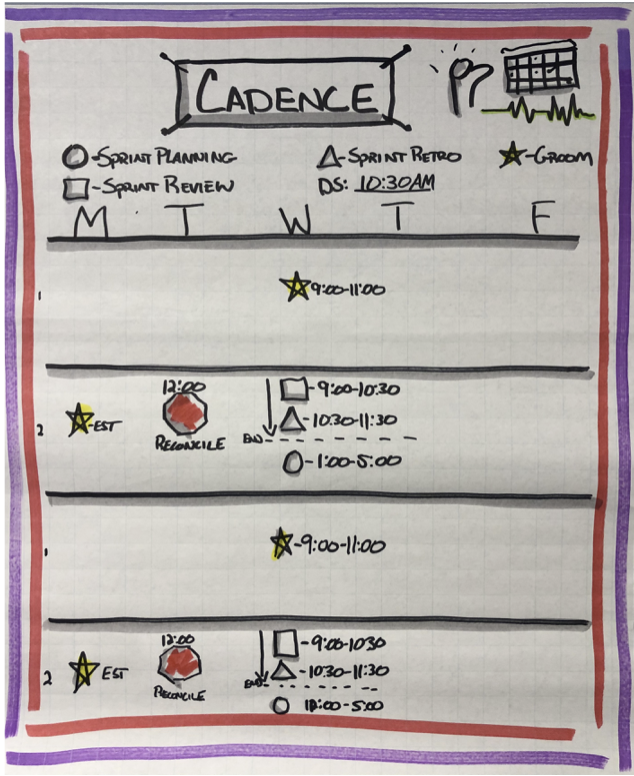 CADENCE
-SPRINT PLANNING -SPRINT RETRO -GROOM
-SPRINT REVIEW DS: 10:30AM
M T W T F
1 9:00-11:00
12:00 -9:00-10:30
2 -EST -10:30-11:30
RECONCILE END
-1:00-5:00
1 -9:00-11:00
12:00 -9:00-1030
2 EST -1030-11:30
RECONCILE END
-5:00